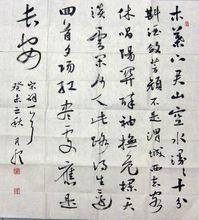 木葉下君山空水漫漫十分
斟酒斂芳顏不是渭城西去客
休唱陽關醉袖撫危欄天
淡雲閑何人此路得生還
回首夕陽紅盡處應是
長安
宋詞一首
癸未之秋